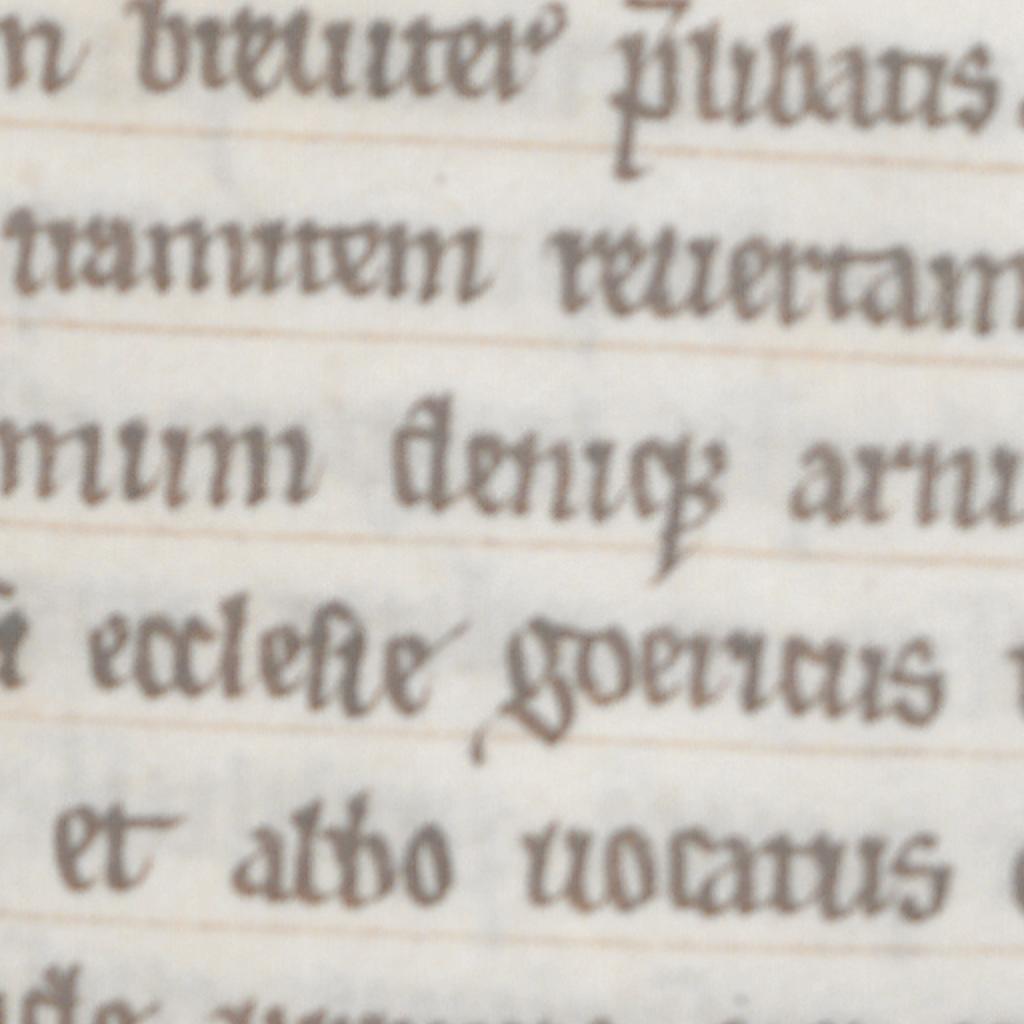 n breuiter p̄libatis.
tramitem reuertam
mum deniqꝫ arni
ecclesie goericus
et albo uocatus